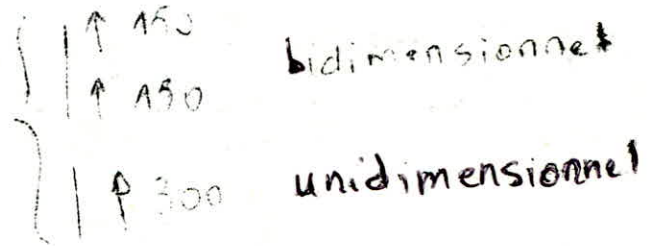 ↑ 150 bidimensionnel
↑ 150
↑ 300 unidimensionnel